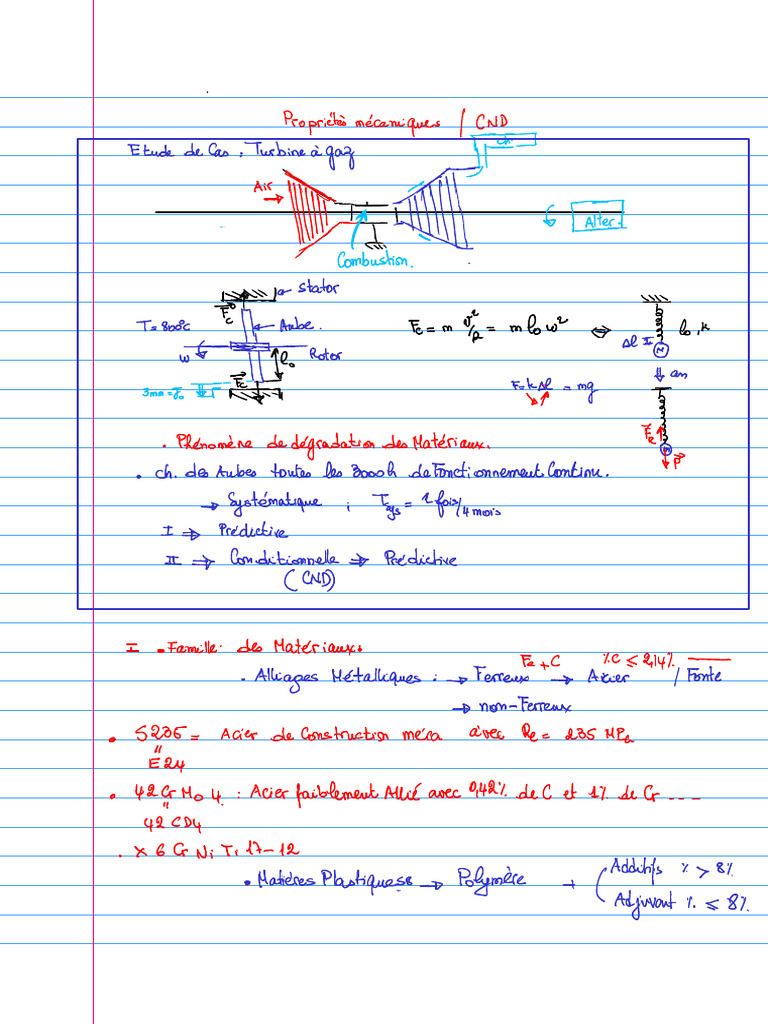 Propriétés mécaniques / CND
Etude de Cas : Turbine à gaz
ch
Air
Alter.
Combustion.
stator
Fc
T = 800°C
Aube.
Fc = m v²/2 = m l0 ω² ⇔
l0, k
Δl
M
ω
l0
Rotor
an
3mm = J0
Fc
F = kΔl = mg
Fr
M
P
. Phénomène de dégradation des Matériaux.
. ch. des Aubes toutes les 3000h de Fonctionnement Continu.
→ Systématique ; Tsys = 1 fois/4 mois
I ⇒ Prédictive
II ⇒ Conditionnelle ⇒ Prédictive
(CND)
I . Famille des Matériaux:
Fe + C %C ≤ 2,14%
. Alliages Métalliques : → Ferreux → Acier / Fonte
→ non-Ferreux
. S235 = Acier de Construction méca avec Re = 235 MPa
"
E24
. 42 Cr Mo 4 : Acier faiblement Allié avec 0,42% de C et 1% de Cr ---
"
42 CD4
. X 6 Cr Ni Ti 17-12
. Matières Plastiques → Polymère + ( Additifs % > 8%
Adjuvant % ≤ 8%